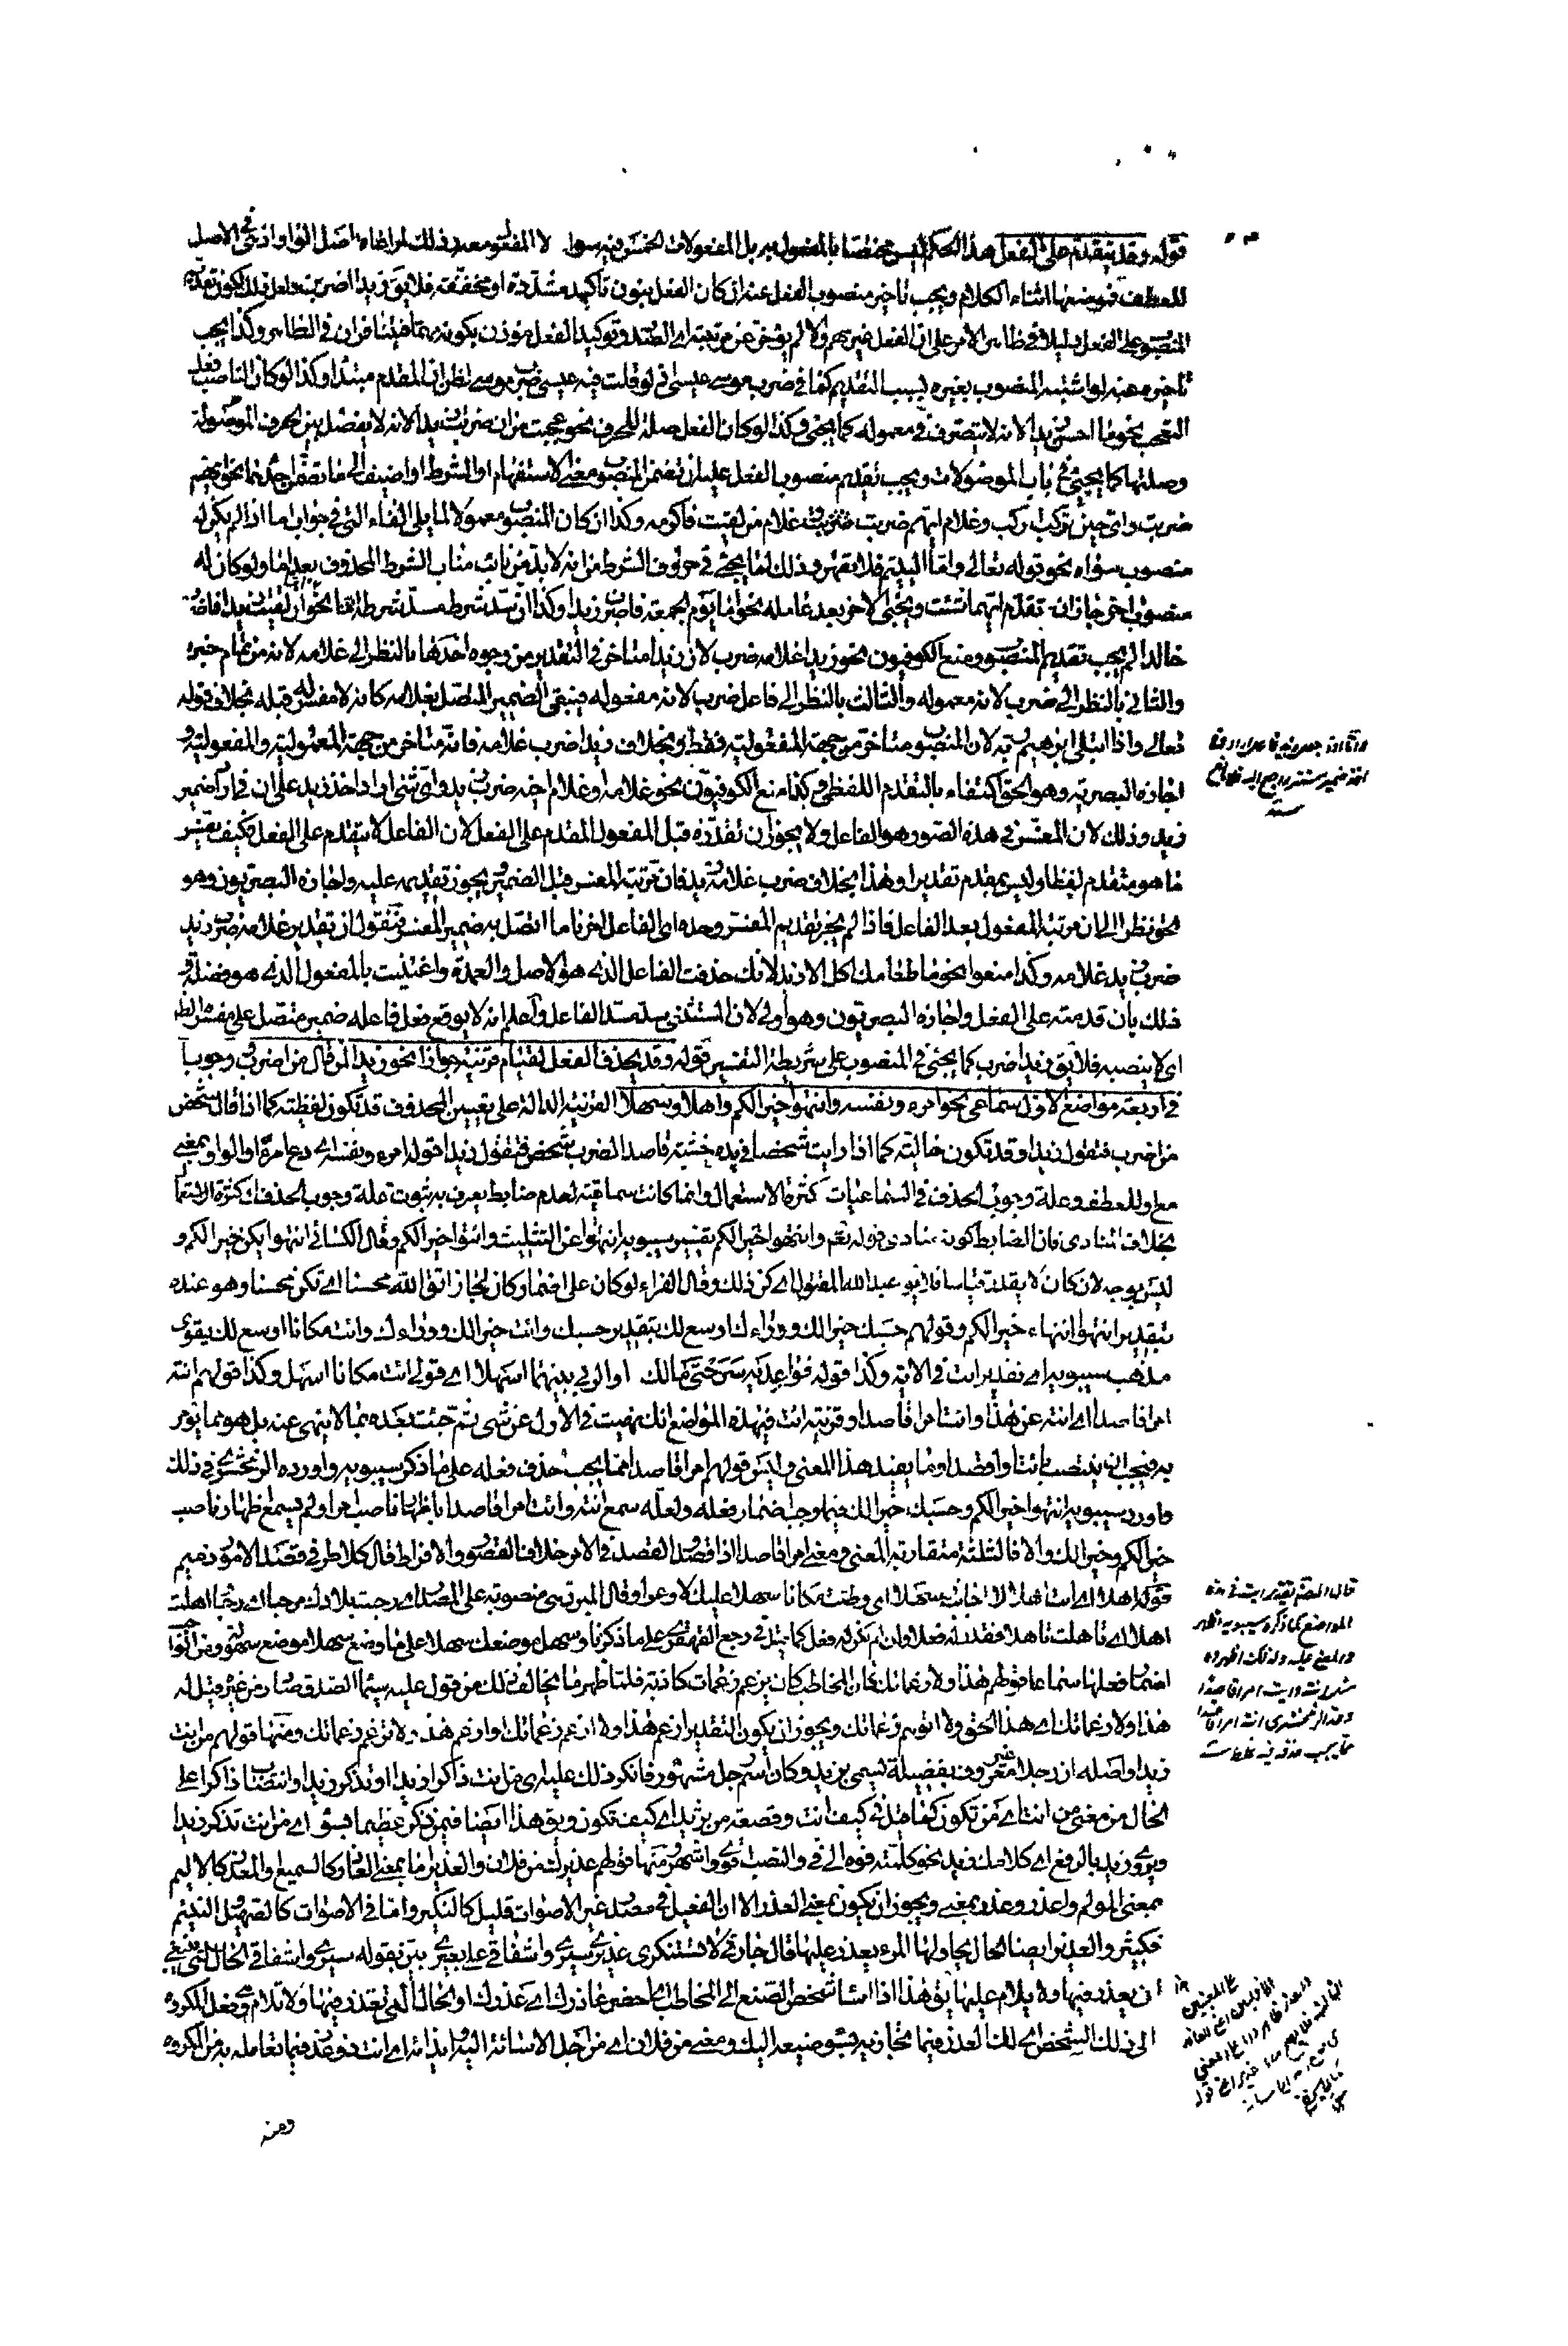 قوله وقد يتقدم على الفعل هذا الحكم ليس مختصا بالمفعول به بل المفعولات الخمس فيه سواء الا المفعول معه وذلك لمراعاة اصل الواو اذ هي في الاصل
للعطف فموضعها اثناء الكلام ويجب تاخير منصوب الفعل عنه ان كان الفعل بنون تاكيد مشددة او مخففة فلا يق زيدا اضربن ولعل ذلك لكون تقديم
المنصوب على الفعل دليلا في ظاهر الامر على ان الفعل غير مهم والا لم يؤخر عن مرتبته اي الصدر وتوكيد الفعل مؤذن بكونه مهما فيتنافران في الظاهر وكذا يجب
تاخيره عنه لو اشتبه المنصوب بغيره بسبب التقديم كما في ضرب موسى عيسى اذ لو قلت فيه عيسى ضرب موسى لظن ان المقدم مبتدا وكذا لو كان الناصب فعل
التعجب نحو ما احسن زيدا لانه لا يتصرف في معموله كما يجئ وكذا لو كان الفعل صلة للحرف نحو عجبت من ان ضربت زيدا لانه لا يفصل بين الحرف الموصولة
وصلتها كما يجئ في باب الموصولات ويجب تقديم منصوب الفعل عليه ان تضمن المنصوب معنى الاستفهام او الشرط او اضيف الى ما تضمن احدهما نحو ايهم
ضربت واي حين تركب اركب وغلام ايهم ضربت وغلام من لقيت فاكرمه وكذا ان كان المنصوب معمولا لما يلي الفاء التي في جواب اما اذا لم يكن له
منصوب سواه نحو قوله تعالى واما اليتيم فلا تقهر وذلك لما يجئ في حروف الشرط من انه لا بد من نائب مناب الشرط المحذوف بعد اما ولو كان له
منصوب اخر جاز ان تقدم ايهما شئت وبقي الاخر بعد عامله نحو اما يوم الجمعة فاضرب زيدا وكذا ان سد شرط مسد شرط اما نحو اما ان لقيت زيدا فاضرب
خالدا لم يجب تقديم المنصوب ومنع الكوفيون نحو زيدا غلامه ضرب لان زيدا متاخر في التقدير من وجوه احدها بالنظر الى غلامه لانه من تمام خبره
والثاني بالنظر الى ضرب لانه معموله والثالث بالنظر الى فاعل ضرب لانه مفعوله فيبقى الضمير المتصل بغلامه كانه لا مفسر له قبله بخلاف قوله
تعالى واذا ابتلى ابرهيم ربه لان المنصوب متاخر من جهة المفعولية فقط وبخلاف زيدا ضرب غلامه فانه متاخر من جهة المعمولية والمفعولية و
اجازه البصرية وهو الحق اكتفاء بالتقدم اللفظي وكذا منع الكوفيون نحو غلامه وغلام اخيه ضرب زيد واي شئ اراد اخذ زيد على ان في اراد ضمير
زيد وذلك لان المفسر في هذه الصور هو الفاعل ولا يجوز ان تقدره قبل المفعول المقدم على الفعل لان الفاعل لا يتقدم على الفعل فكيف يفسر
ما هو متقدم لفظا وليس بمقدم تقديرا وهذا بخلاف ضرب غلامه زيد فان مرتبة المفسر قبل الضمير يجوز تقديمه عليه واجازه البصريون وهو
الحق نظرا الى ان مرتبة المفعول بعد الفاعل فاذا لم يجز تقديم المفسر وحده اي الفاعل اخرنا ما اتصل به ضمير المفسر فنقول ان تقدير غلامه ضرب زيد
ضرب زيد غلامه وكذا منعوا نحو ما طعامك اكل الا زيد لانك حذفت الفاعل الذي هو الاصل والعمدة واعتنيت بالمفعول الذي هو فضلة و
ذلك بان قدمته على الفعل واجازه البصريون وهو اولى لان المستثنى سد مسد الفاعل واعلم انه لا يوقع فعل فاعله ضمير متصل على مفسر الظاهر
اي لا ينصبه فلا يق زيدا ضرب كما يجئ في المنصوب على شريطة التفسير قوله وقد يحذف الفعل لقيام قرينة جوازا نحو زيدا لمن قال من اضرب ووجوبا
في اربعة مواضع الاول سماعي نحو امرء ونفسه وانتهوا خيرا لكم واهلا وسهلا القرينة الدالة على تعيين المحذوف قد تكون لفظية كما اذا قال شخص
من اضرب فتقول زيدا وقد تكون حالية كما اذا رايت شخصا في يده خشبة قاصدا لضرب شخص فتقول زيدا قوله امرء ونفسه اي دع امرءا والواو بمعنى
مع او للعطف وعلة وجوب الحذف في السماعيات كثرة الاستعمال وانما كانت سماعية لعدم ضابط يعرف به ثبوت علة وجوب الحذف اي كثرة الاستعمال
بخلاف المنادى فان الضابط كونه منادى قوله تعم وانتهوا خيرا لكم تفسير سيبويه انتهوا عن التثليث وائتوا خيرا لكم وقال الكسائي انتهوا يكن خيرا لكم و
ليس بوجه لان كان لا يقدر قياسا فلا يق عبد الله المقتول اي كن ذلك وقال الفراء لو كان على اضمار كان لجاز اتق الله محسنا اي تكن محسنا وهو عنده
بتقدير انتهوا انتهاء خيرا لكم وقولهم حسبك خيرا لك ووراءك اوسع لك بتقدير حسبك وائت خيرا لك ووراءك وائت مكانا اوسع لك يقوى
مذهب سيبويه اي تقدير ائت في الاية وكذا قوله فواعديه سرحتي مالك او الربى بينهما اسهلا اي قولي ائت مكانا اسهل وكذا قولهم انته
امرا قاصدا اي انته عن هذا وائت امرا قاصدا وقرينة ائت في هذه المواضع انك نهيت في الاول عن شئ ثم جئت بعده بما لا ينهى عنه بل هو مما يؤمر
به فيجب ان ينتصب بائت او اقصد او ما يفيد هذا المعنى وليس قولهم امرا قاصدا مما يجب حذف فعله على ما ذكر سيبويه واورده الزمخشري في ذلك
واورد سيبويه انتهوا خيرا لكم وحسبك خيرا لك فيما وجب اضمار فعله ولعله سمع انته وائت امرا قاصدا باظهار ناصب امرا ولم يسمع اظهار ناصب
خيرا لكم وخيرا لك والا فالثلثة متقاربة المعنى ومعنى امرا قاصدا اذا قصد القصد في الامر خلاف القصور والافراط قال كلا طرفي قصد الامور ذميم
قوله اهلا اي اتيت اهلا لا اجانب وسهلا اي وطئت مكانا سهلا عليك لا وعرا وقال المبرد هي منصوبة على المصدر اي رحبت بلادك مرحبا اي رحبا واهلت
اهلا اي تاهلت تاهلا فقدر له فعلا وان لم يكن له فعل كما قيل في رجع القهقرى على ما ذكرنا وسهل موضعك سهلا على ما وضع سهلا موضع سهولة ومن الواجب
اضمار فعلها سماعا قولهم هذا ولا زعماتك كان المخاطب كان يزعم زعمات كاذبة فلما ظهر ما يخالف ذلك من قول عليه سيما الصدق وصادر من غيره قيل له
هذا ولا زعماتك اي هذا الحق ولا اتوهم زعماتك ويجوز ان يكون التقدير ازعم هذا ولا ازعم زعماتك او ازعم هذا ولا تزعم زعماتك ومنها قولهم من انت
زيدا واصله ان رجلا غير معروف بفضيلة تسمى بزيد وكان اسم رجل مشهور فانكر ذلك عليه اي من انت ذاكرا زيدا او تذكر زيدا وانتصاب ذاكرا على
الحال من معنى من انت اي من تكون كما قيل في كيف انت وقصعة من ثريد اي كيف تكون ويق هذا ايضا فيمن ذكر عظيما بسوء اي من انت تذكر زيدا
ويروى زيد بالرفع اي كلامك زيد نحو كلمته فوه الى في والنصب اقوى واشهر ومنها قولهم عذيرك من فلان والعذير اما بمعنى العاذر كالسميع والمعذر كالاليم
بمعنى المولم واعذر وعذر بمعنى ويجوز ان يكون بمعنى العذر الا ان الفعيل في مصدر غير الاصوات قليل كالنكير واما في الاصوات كالصهيل والنئيم
فكثير والعذير ايضا الحال يحاولها المرء يعذر عليها قال جاري لا تستنكري عذيري سيري واشفاقي على بعيري بين بقوله سيري واشفاقي الحال التي ينبغي
ان يعذر فيها ولا يلام عليها يق هذا اذا اساء شخص الصنيع الى المخاطب اي احضر عاذرك اي عذرك او الحال التي تعذر فيها ولا تلام وفعل المكروه
الى ذلك الشخص اي لك العذر فيما تجازيه بسوء صنيعه اليك ومعنى من فلان اي من اجل الاساءة اليه وايذائه اي انت ذو عذر فيما تعامله به من المكروه
ومنه
قال المص تقدير ائت في هذه
المواضع كما ذكره سيبويه اظهر